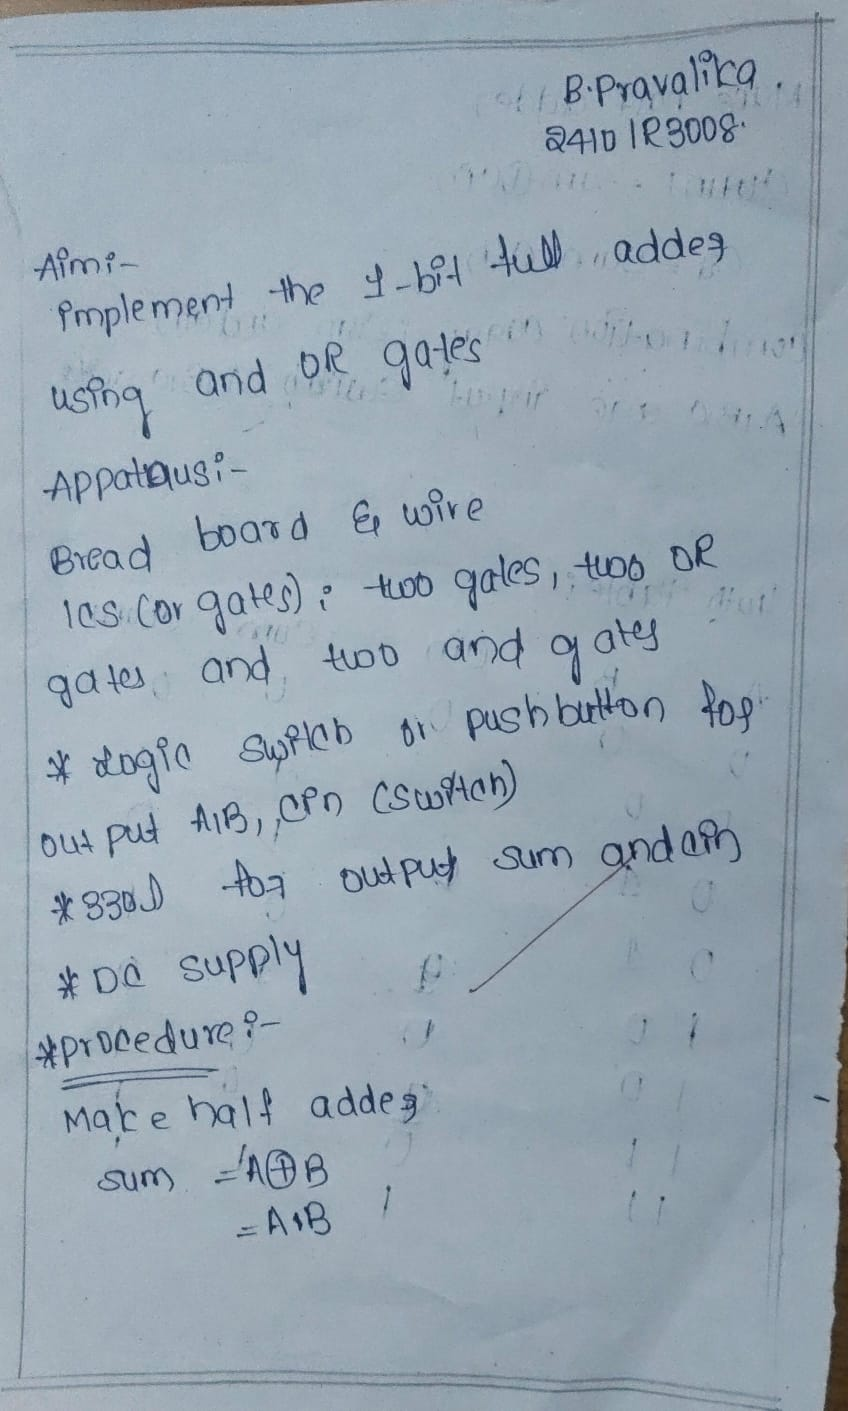 B.Pravalika.
2410 1R3008.
Aim:-
implement the 1-bit full adder
using and OR gates
Appataus:-
Bread board & wire
ICS (or gates): two gates, two OR
gates and two and gates
* Logic switch or push button for
out put A,B, Cin (switch)
* 330Ω for output sum and cin
* DC supply
*procedure:-
Make half adder
sum = A⊕B
= A.B